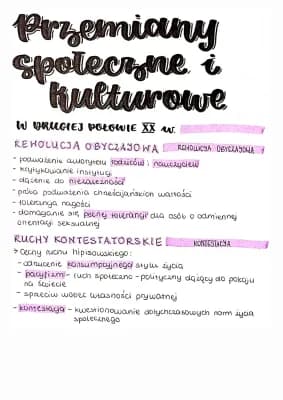 Przemiany
społeczne i
kulturowe
W DRUGIEJ POŁOWIE XX w.
REWOLUCJA OBYCZAJOWA REWOLUCJA OBYCZAJOWA
- podważenie autorytetu rodziców i nauczycieli
- krytykowanie instytucji
- dążenie do niezależności
- próba podważenia chrześcijańskich wartości
- tolerancja nagości
- domaganie się pełnej tolerancji dla osób o odmiennej
orientacji seksualnej
RUCHY KONTESTATORSKIE KONTESTACJA
> Cechy ruchu hipisowskiego:
- odrzucenie konsumpcyjnego stylu życia
- pacyfizm - ruch społeczno - polityczny dążący do pokoju
na świecie
- sprzeciw wobec własności prywatnej
- kontestacja - kwestionowanie dotychczasowych norm życia
społecznego